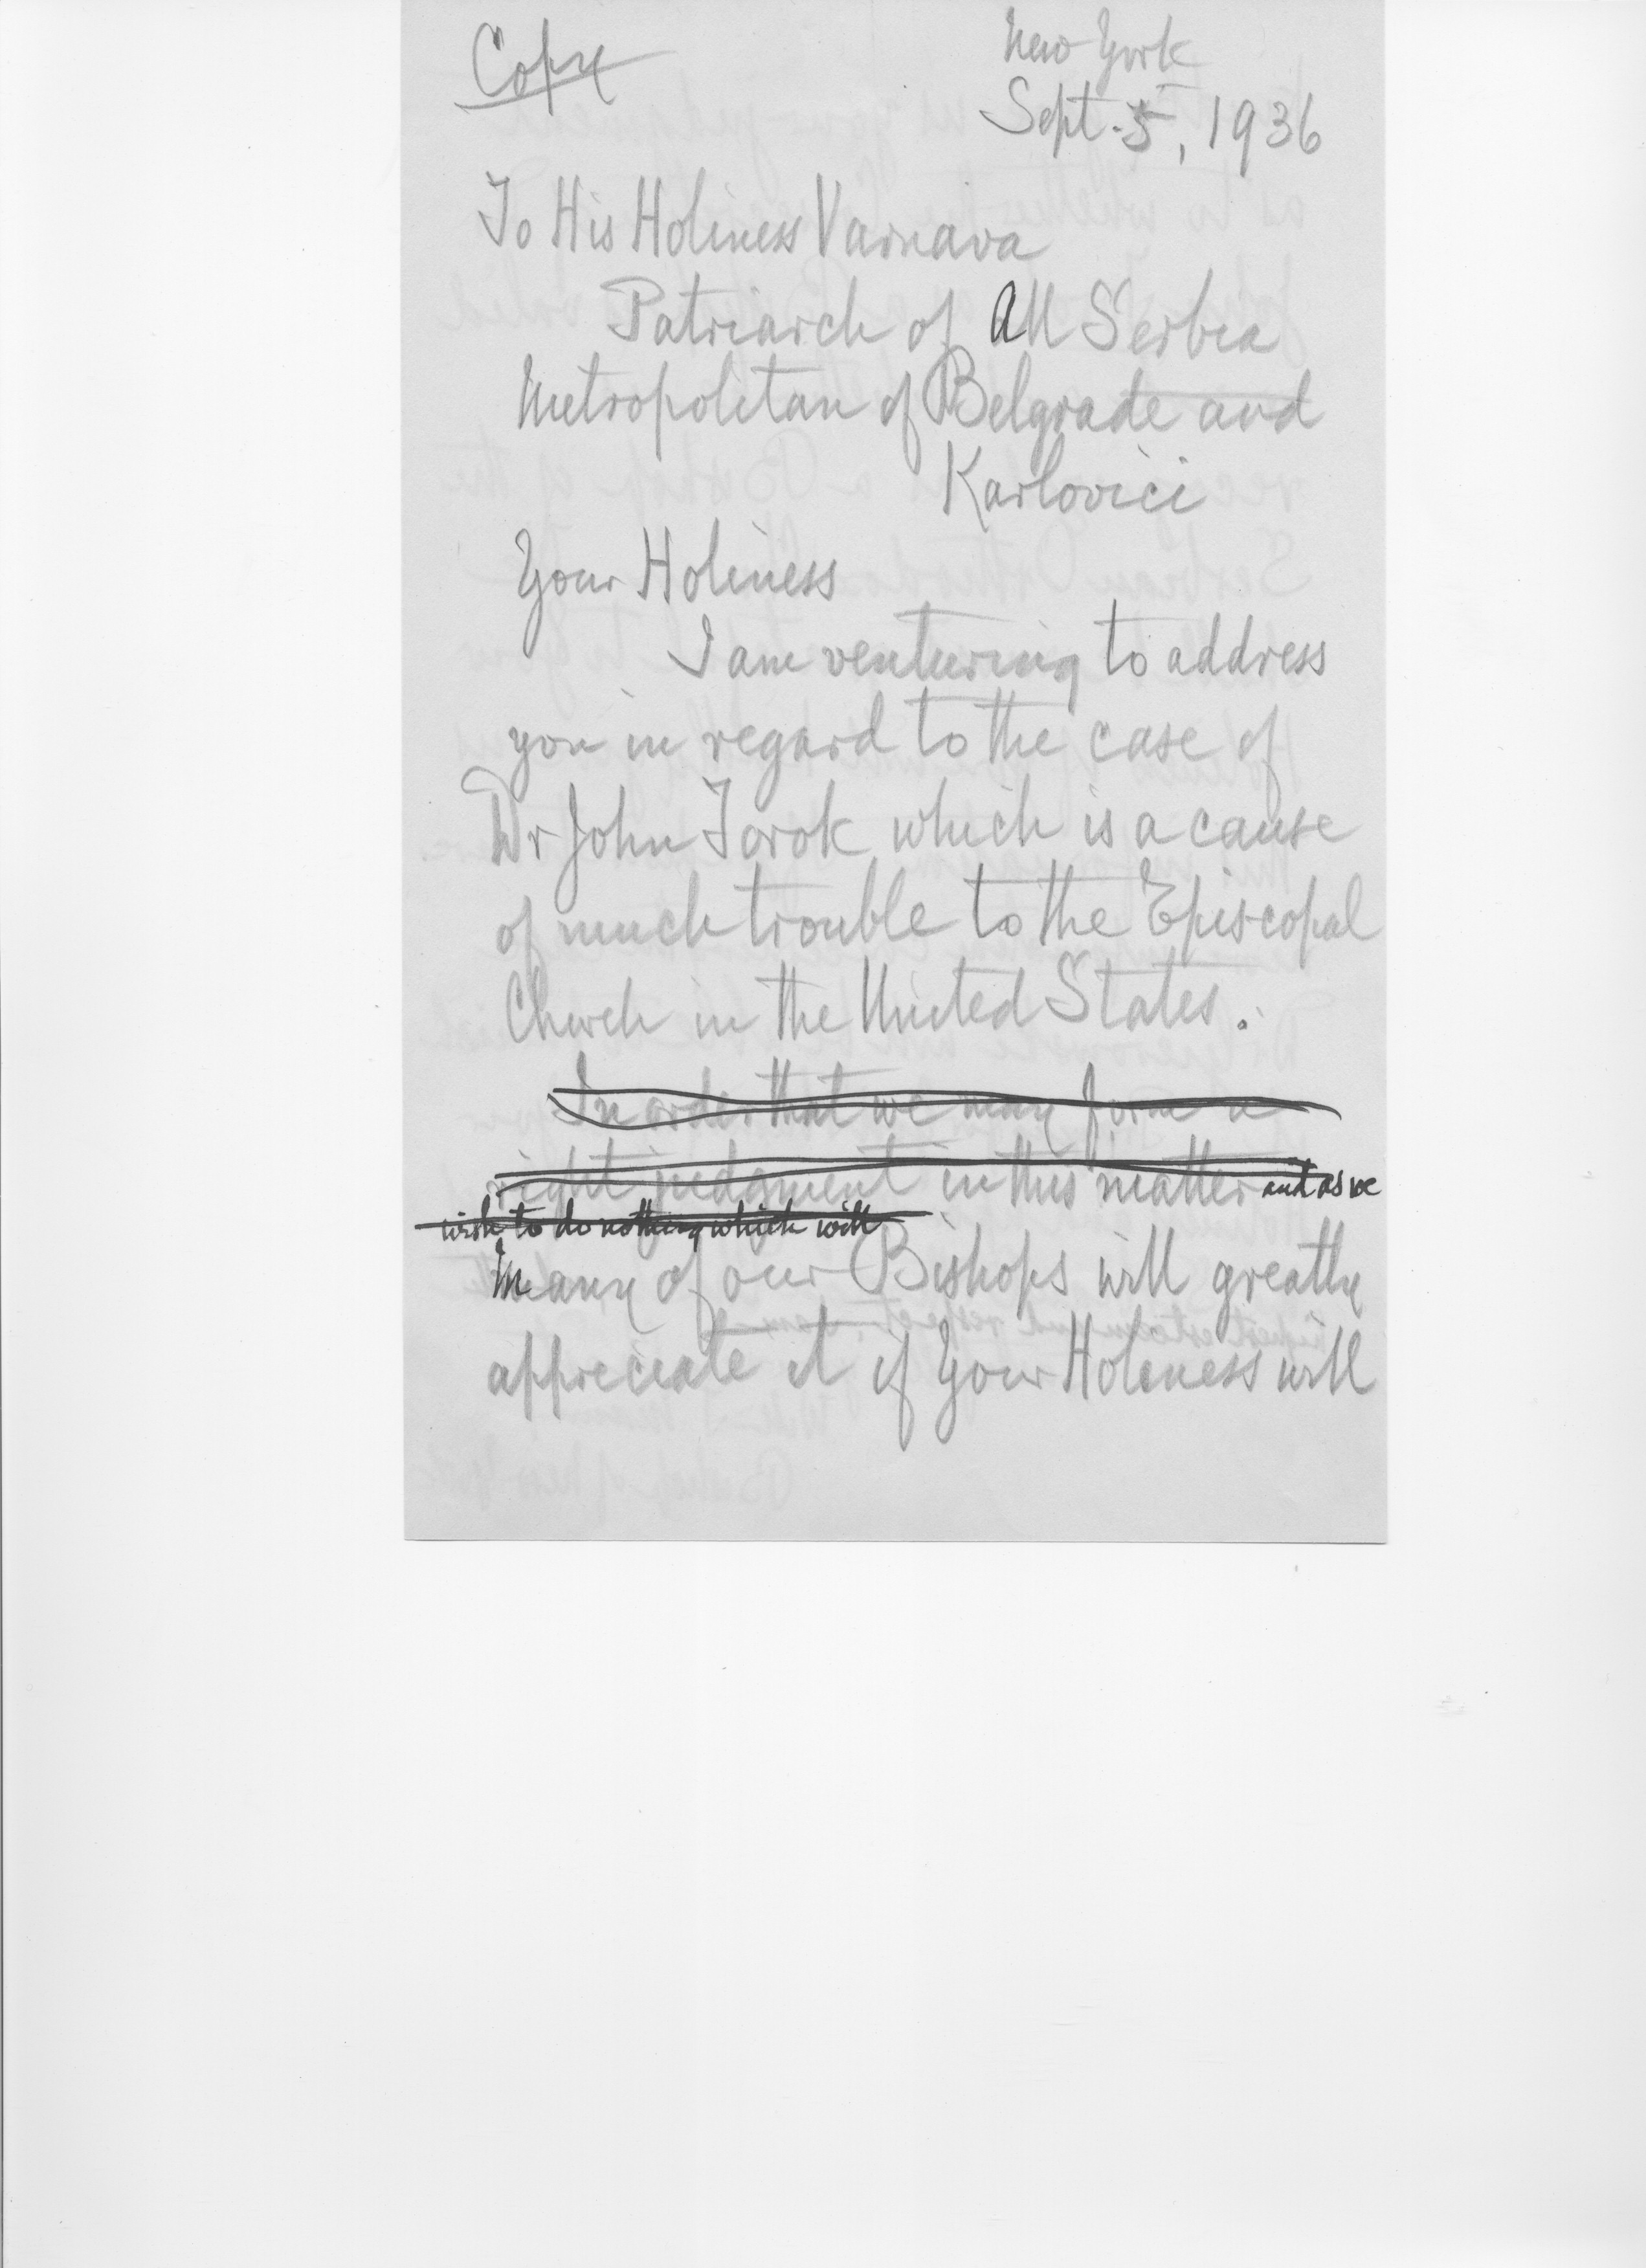 Copy
New York
Sept. 5, 1936
To His Holiness Varnava
Patriarch of All Serbia
Metropolitan of Belgrade and
Karlovici
Your Holiness
I am venturing to address
you in regard to the case of
Dr John Torok which is a cause
of much trouble to the Episcopal
Church in the United States.
In order that we may form a
right judgment in this matter and as we
wish to do nothing which will
Many of our Bishops will greatly
appreciate it if Your Holiness will